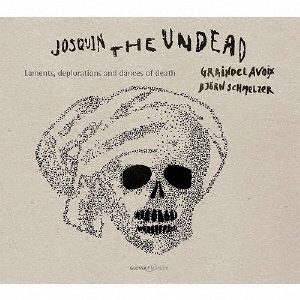 JOSQUIN THE UNDEAD
Laments, deplorations and dances of death
GRAINDELAVOIX
BJÖRN SCHMELZER